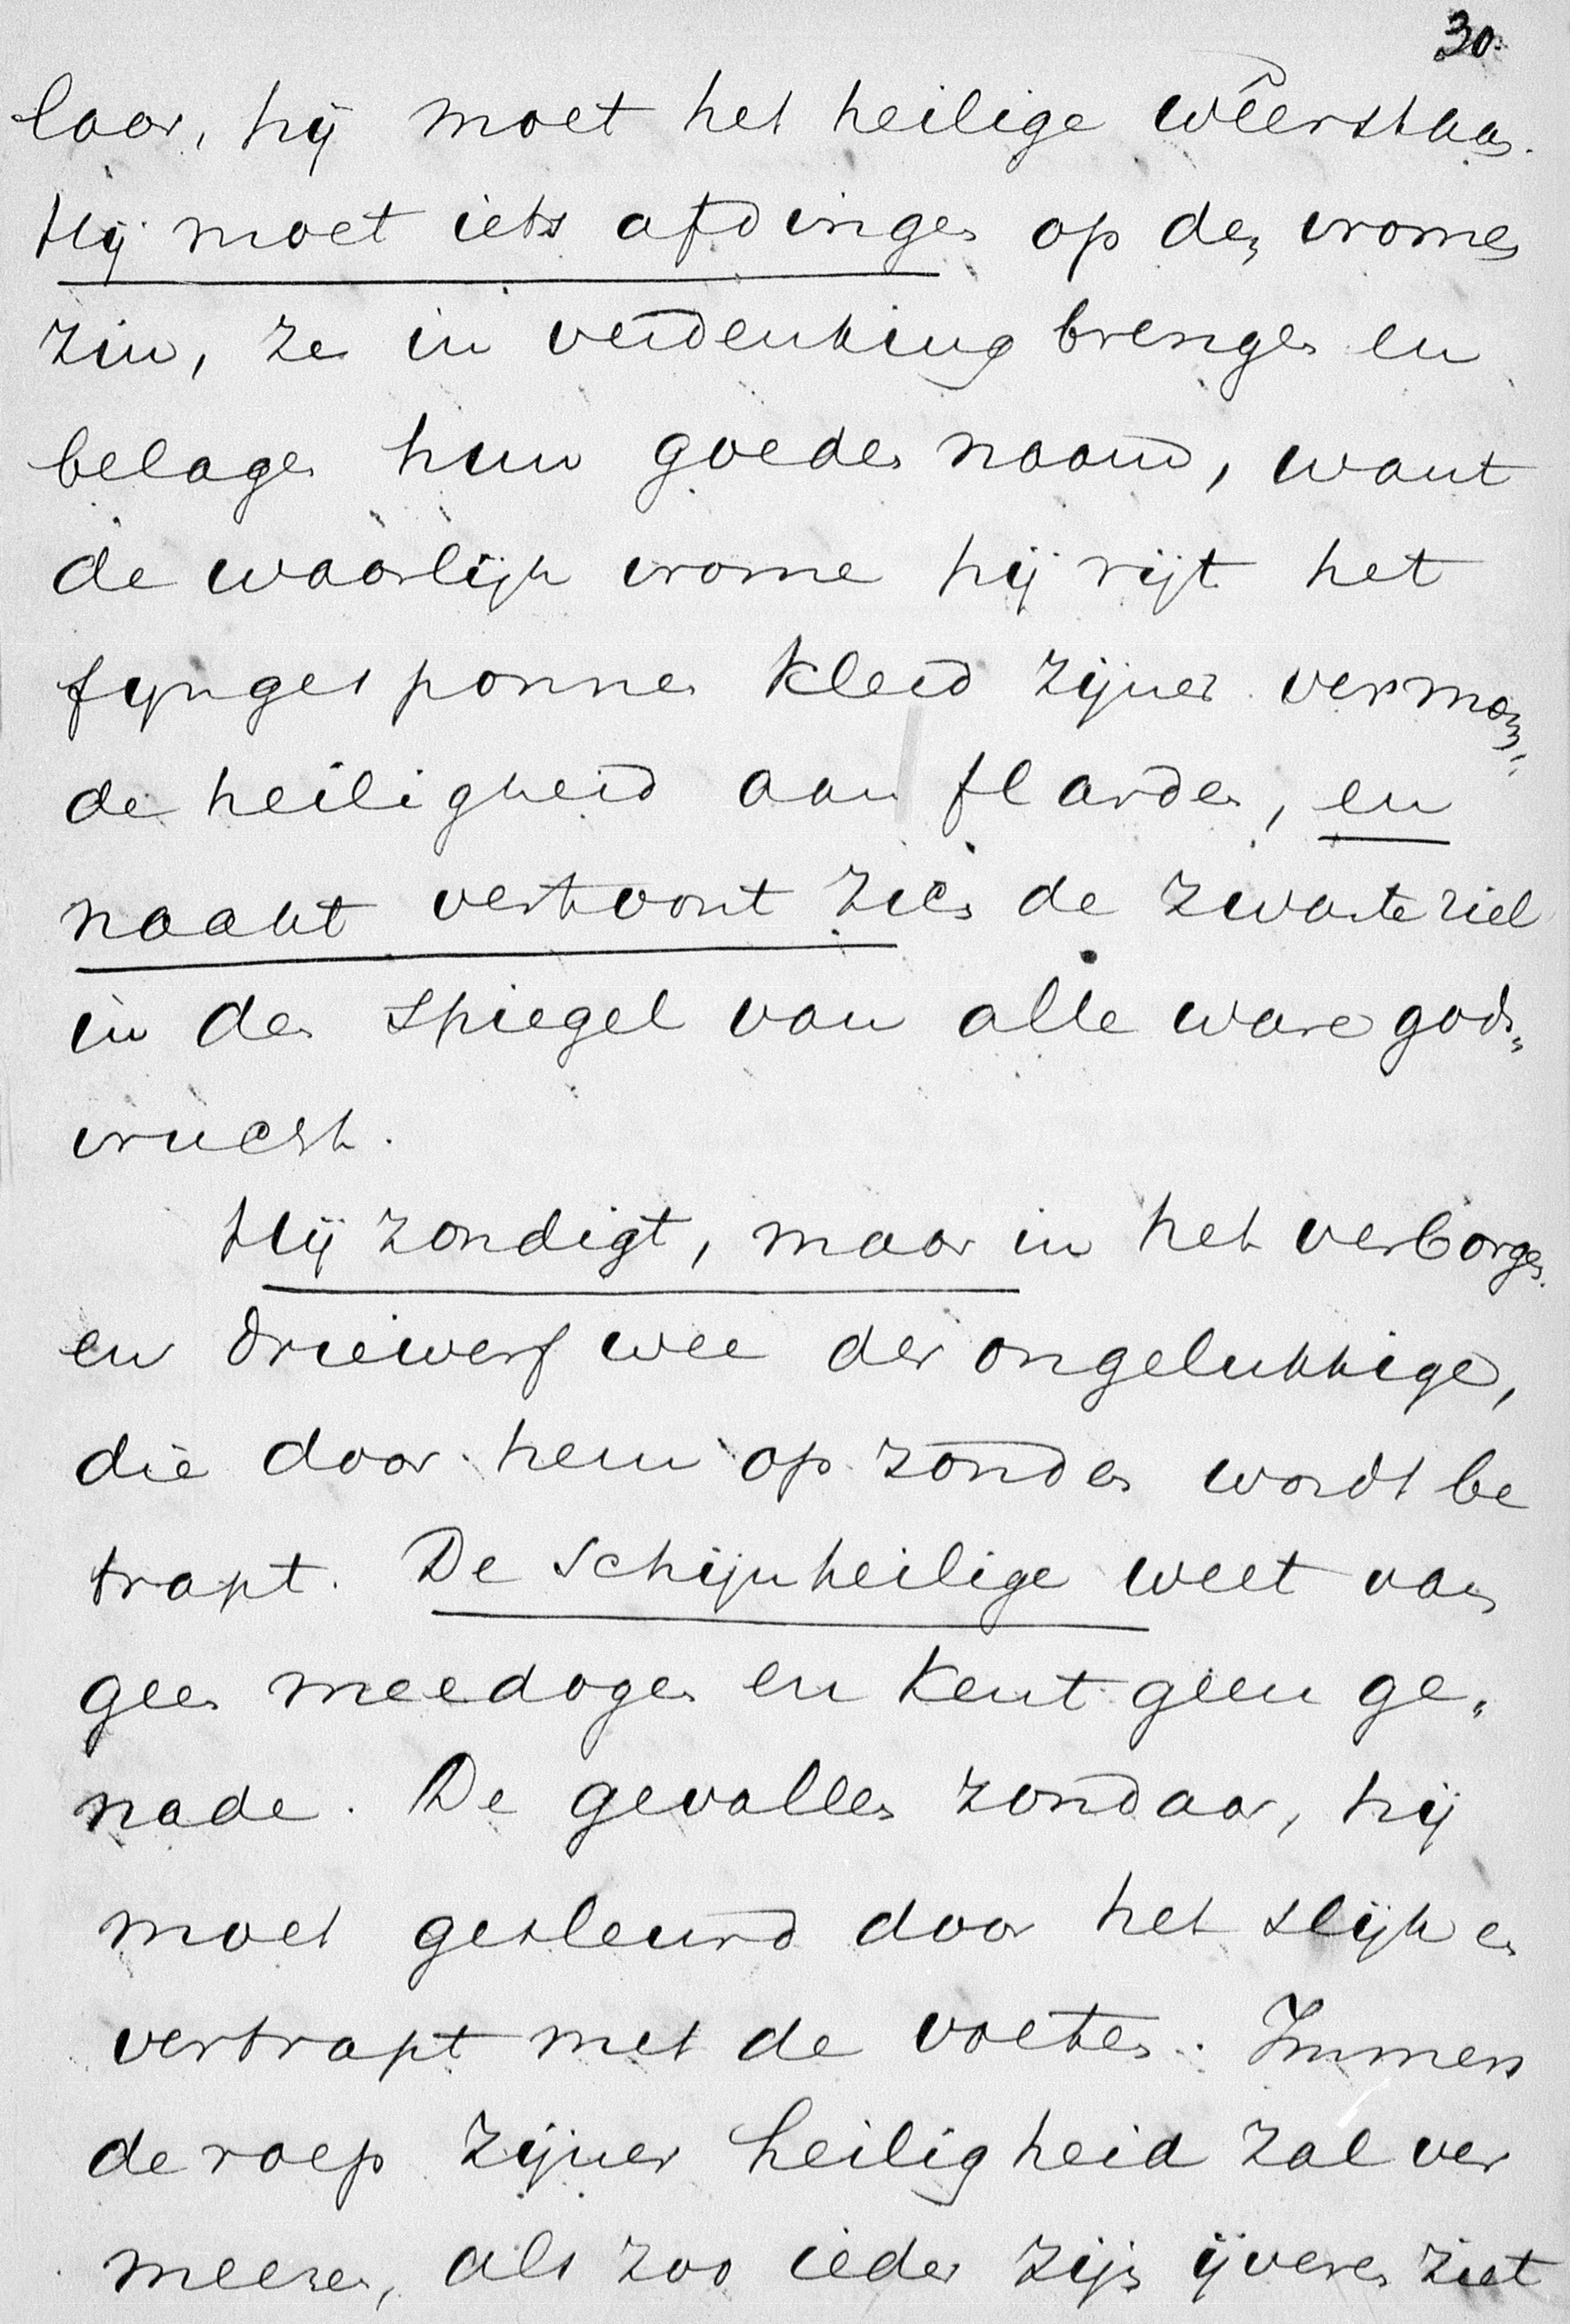 30.
laar, hij moet het heilige wêerstaan.
Hij moet iets afdingen op den vromen
zin, ze in verdenking brengen en
belagen hun goeden naam, want
de waarlijk vrome hij rijt het
fijngesponnen kleed zijner vermom„
de heiligheid aan flarden, en
naakt vertoont zich de zwarte ziel
in den spiegel van alle ware gods„
vrucht.
Hij zondigt, maar in het verborgen.
en driewerf wee den ongelukkige,
die door hem op zonden wordt be
trapt. De schijnheilige weet van
geen meedogen en kent geen ge„
nade. De gevallen zondaar, hij
moet gesleurd door het slijk en
vertrapt met de voeten. Immers
de roep zijner heiligheid zal ver
meeren, als zoo ieder zijn ijveren ziet